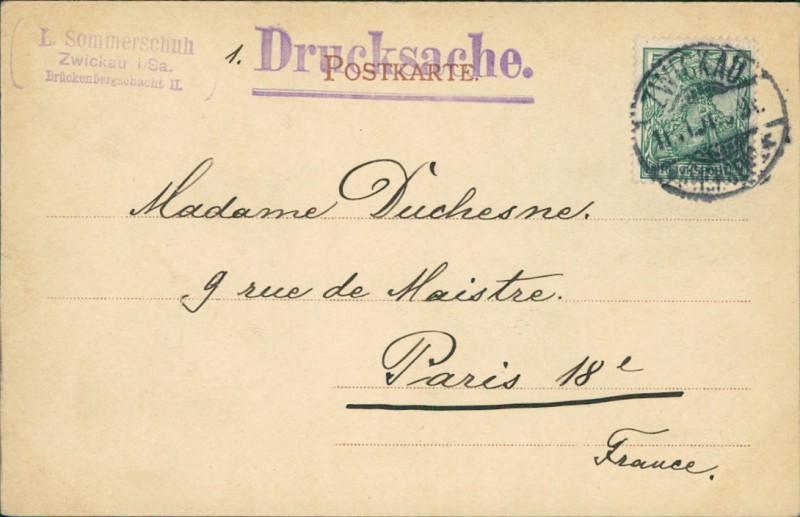 L. Sommerschuh
Zwickau i/Sa.
Brückenbergschacht II.
1.
Drucksache.
POSTKARTE.
ZWICKAU
Madame Duchesne.
9 rue de Maistre.
Paris 18e
France.